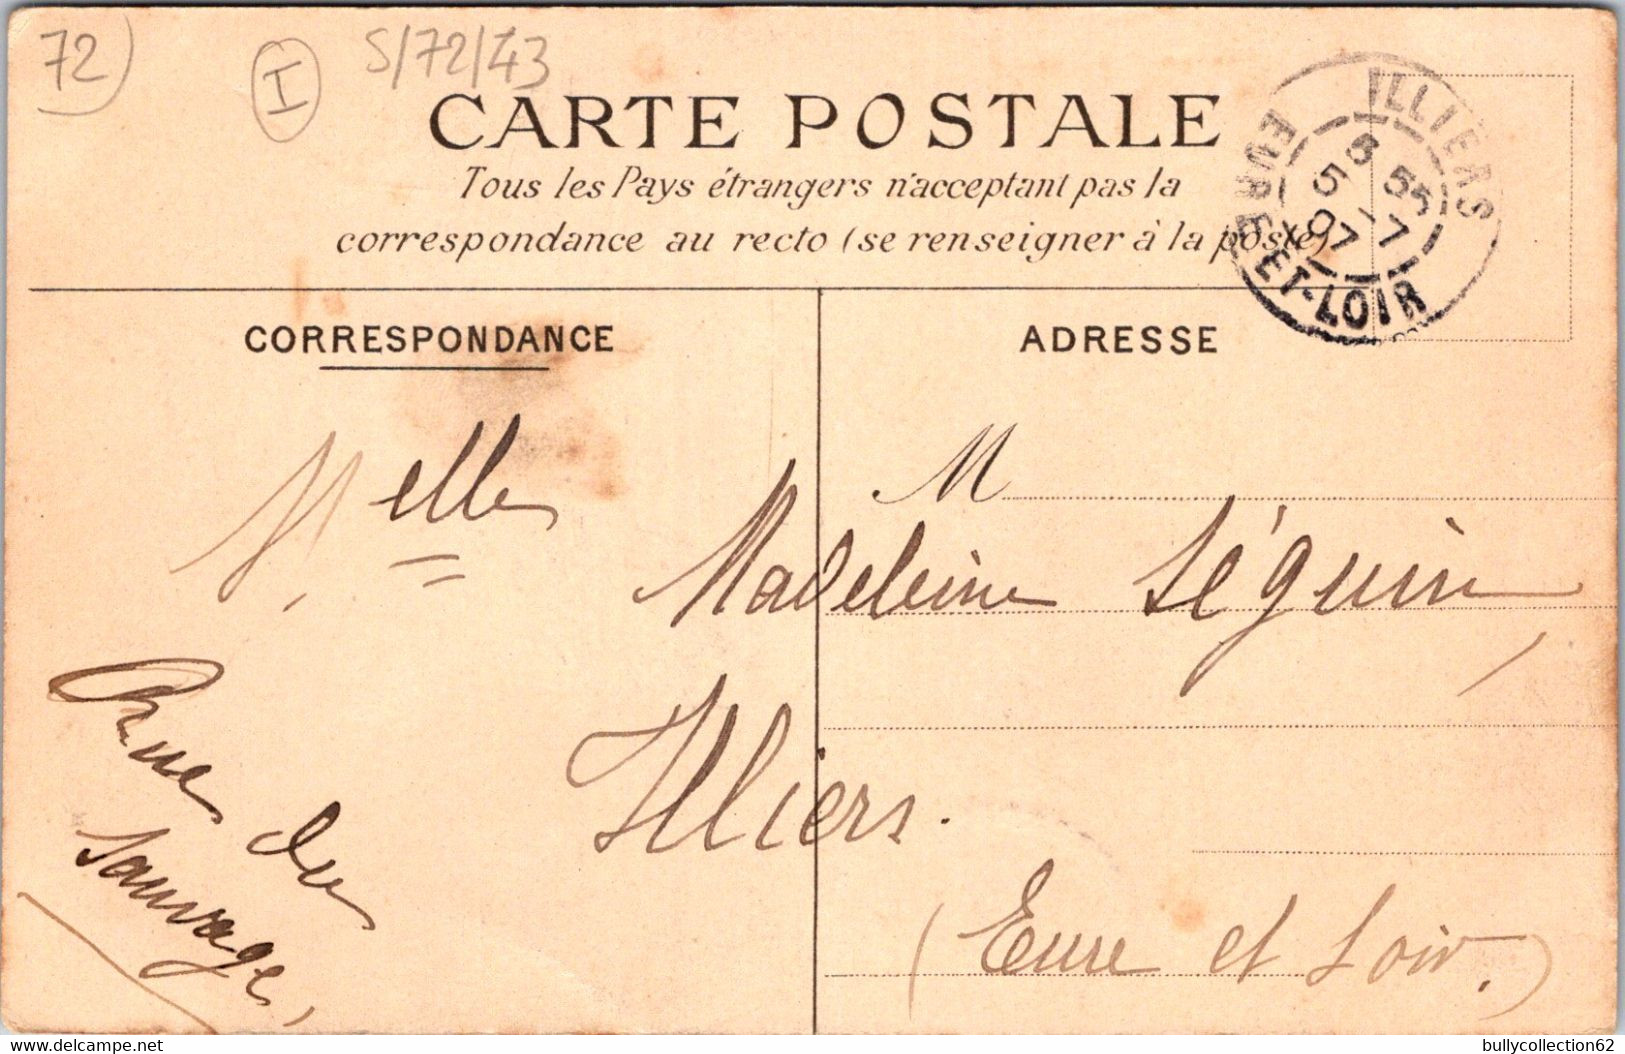 72
I
S/72/43
CARTE POSTALE
Tous les Pays étrangers n'acceptant pas la
correspondance au recto (se renseigner à la poste)
ILLIERS
EURE-ET-LOIR
8 55
5 -7
07
CORRESPONDANCE
ADRESSE
M
Melle
Madeleine Séguin,
Rue du
Sauvage,
Illiers.
(Eure et Loir.)
delcampe.net
bullycollection62